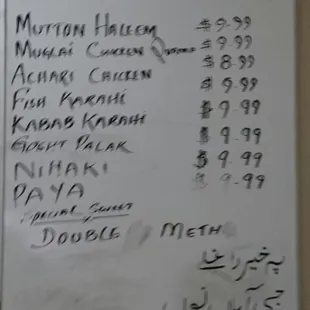 MUTTON HALEEM $9.99
MUGLAI CHICKEN $9.99
ACHARI CHICKEN $8.99
FISH KARAHI $9.99
KABAB KARAHI $9.99
GOSHT PALAK $9.99
NIHARI $9.99
PAYA $9.99
SPECIAL SWEET
DOUBLE METH
په خیر راغلے
جی آیاں نوں